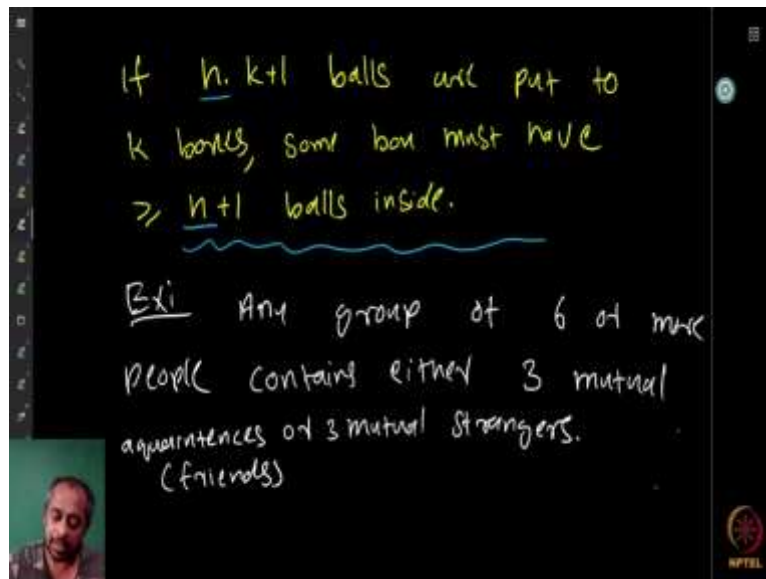 If n. k+1 balls are put to
k boxes, some box must have
⩾ n+1 balls inside.
Ex: Any group of 6 or more
people contains either 3 mutual
aquaintences or 3 mutual strangers.
(friends)
NPTEL